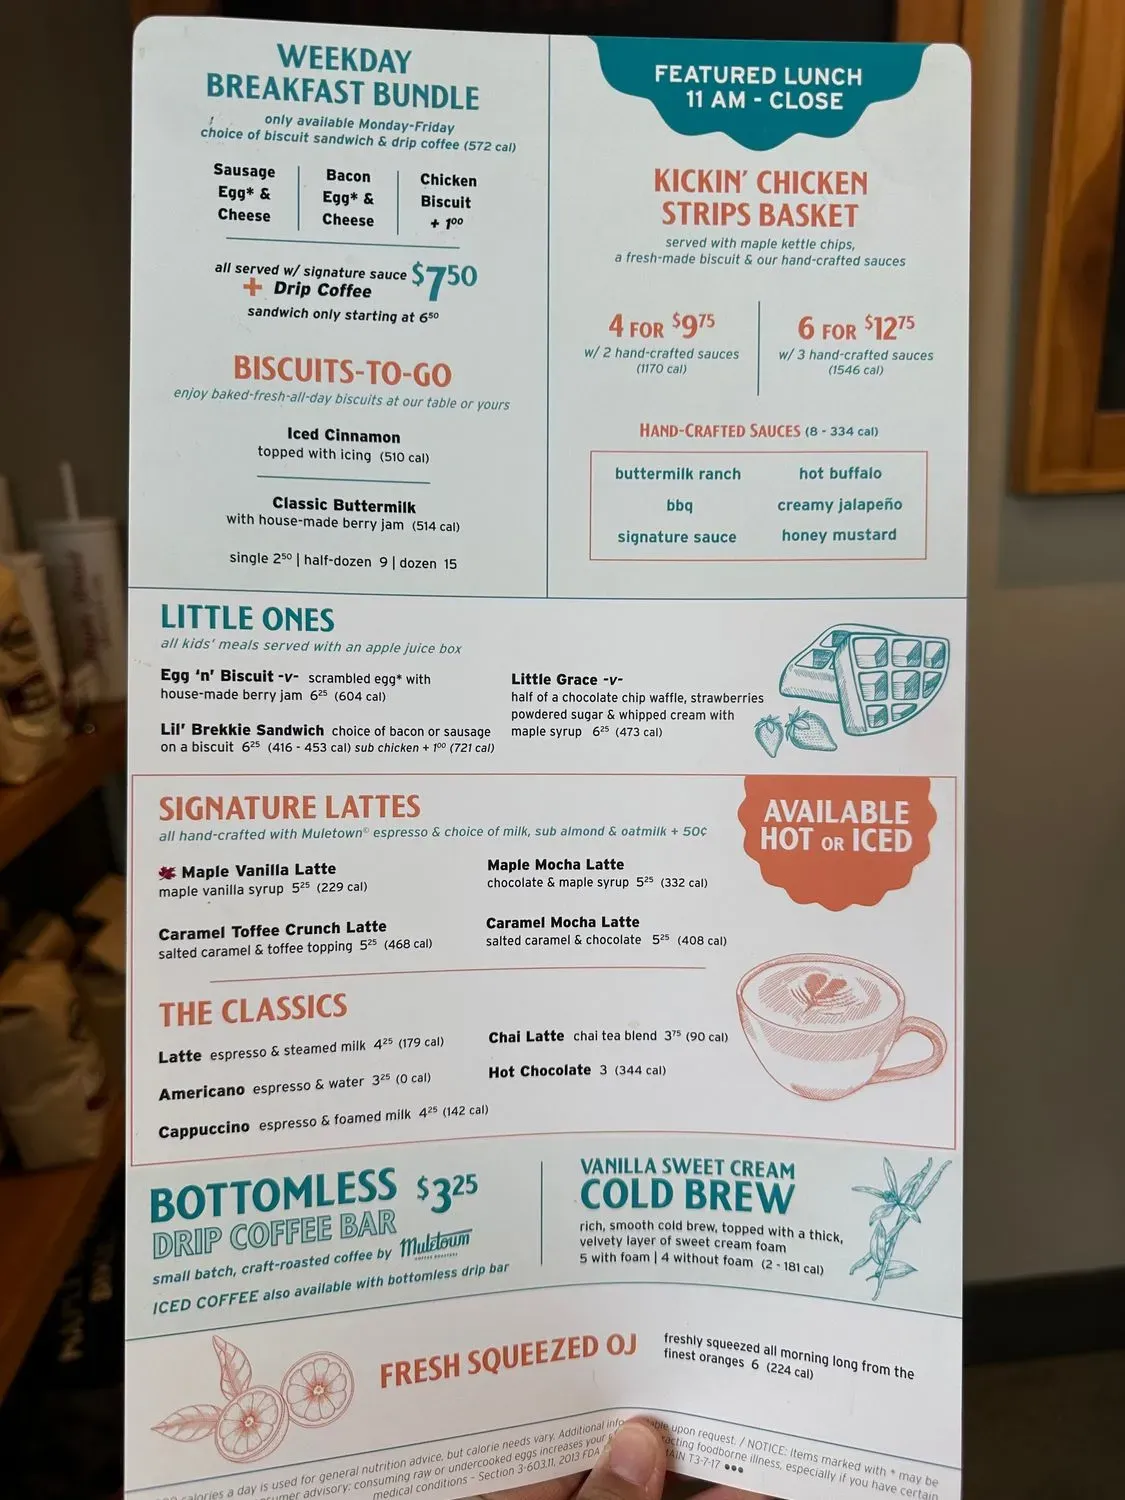 WEEKDAY
BREAKFAST BUNDLE
only available Monday-Friday
choice of biscuit sandwich & drip coffee (572 cal)
Sausage
Egg* &
Cheese
Bacon
Egg* &
Cheese
Chicken
Biscuit
+ 1⁰⁰
all served w/ signature sauce $7⁵⁰
+ Drip Coffee
sandwich only starting at 6⁵⁰
BISCUITS-TO-GO
enjoy baked-fresh-all-day biscuits at our table or yours
Iced Cinnamon
topped with icing (510 cal)
Classic Buttermilk
with house-made berry jam (514 cal)
single 2⁵⁰ | half-dozen 9 | dozen 15
FEATURED LUNCH
11 AM - CLOSE
KICKIN' CHICKEN
STRIPS BASKET
served with maple kettle chips,
a fresh-made biscuit & our hand-crafted sauces
4 FOR $9⁷⁵
w/ 2 hand-crafted sauces
(1170 cal)
6 FOR $12⁷⁵
w/ 3 hand-crafted sauces
(1546 cal)
HAND-CRAFTED SAUCES (8 - 334 cal)
buttermilk ranch
bbq
signature sauce
hot buffalo
creamy jalapeño
honey mustard
LITTLE ONES
all kids' meals served with an apple juice box
Egg 'n' Biscuit -v- scrambled egg* with
house-made berry jam 6²⁵ (604 cal)
Lil' Brekkie Sandwich choice of bacon or sausage
on a biscuit 6²⁵ (416 - 453 cal) sub chicken + 1⁰⁰ (721 cal)
Little Grace -v-
half of a chocolate chip waffle, strawberries
powdered sugar & whipped cream with
maple syrup 6²⁵ (473 cal)
SIGNATURE LATTES
all hand-crafted with Muletown© espresso & choice of milk, sub almond & oatmilk + 50¢
AVAILABLE
HOT OR ICED
Maple Vanilla Latte
maple vanilla syrup 5²⁵ (229 cal)
Caramel Toffee Crunch Latte
salted caramel & toffee topping 5²⁵ (468 cal)
Maple Mocha Latte
chocolate & maple syrup 5²⁵ (332 cal)
Caramel Mocha Latte
salted caramel & chocolate 5²⁵ (408 cal)
THE CLASSICS
Latte espresso & steamed milk 4²⁵ (179 cal)
Americano espresso & water 3²⁵ (0 cal)
Cappuccino espresso & foamed milk 4²⁵ (142 cal)
Chai Latte chai tea blend 3⁷⁵ (90 cal)
Hot Chocolate 3 (344 cal)
BOTTOMLESS $3²⁵
DRIP COFFEE BAR
small batch, craft-roasted coffee by Muletown
ICED COFFEE also available with bottomless drip bar
VANILLA SWEET CREAM
COLD BREW
rich, smooth cold brew, topped with a thick,
velvety layer of sweet cream foam
5 with foam | 4 without foam (2 - 181 cal)
FRESH SQUEEZED OJ
freshly squeezed all morning long from the
finest oranges 6 (224 cal)
calories a day is used for general nutrition advice, but calorie needs vary. Additional upon request. / NOTICE: Items marked with * may be
advisory: consuming raw or undercooked eggs increases your foodborne illness, especially if you have certain
medical conditions - Section 3-603.11, 2013 FDA T3-7-17 ●●●